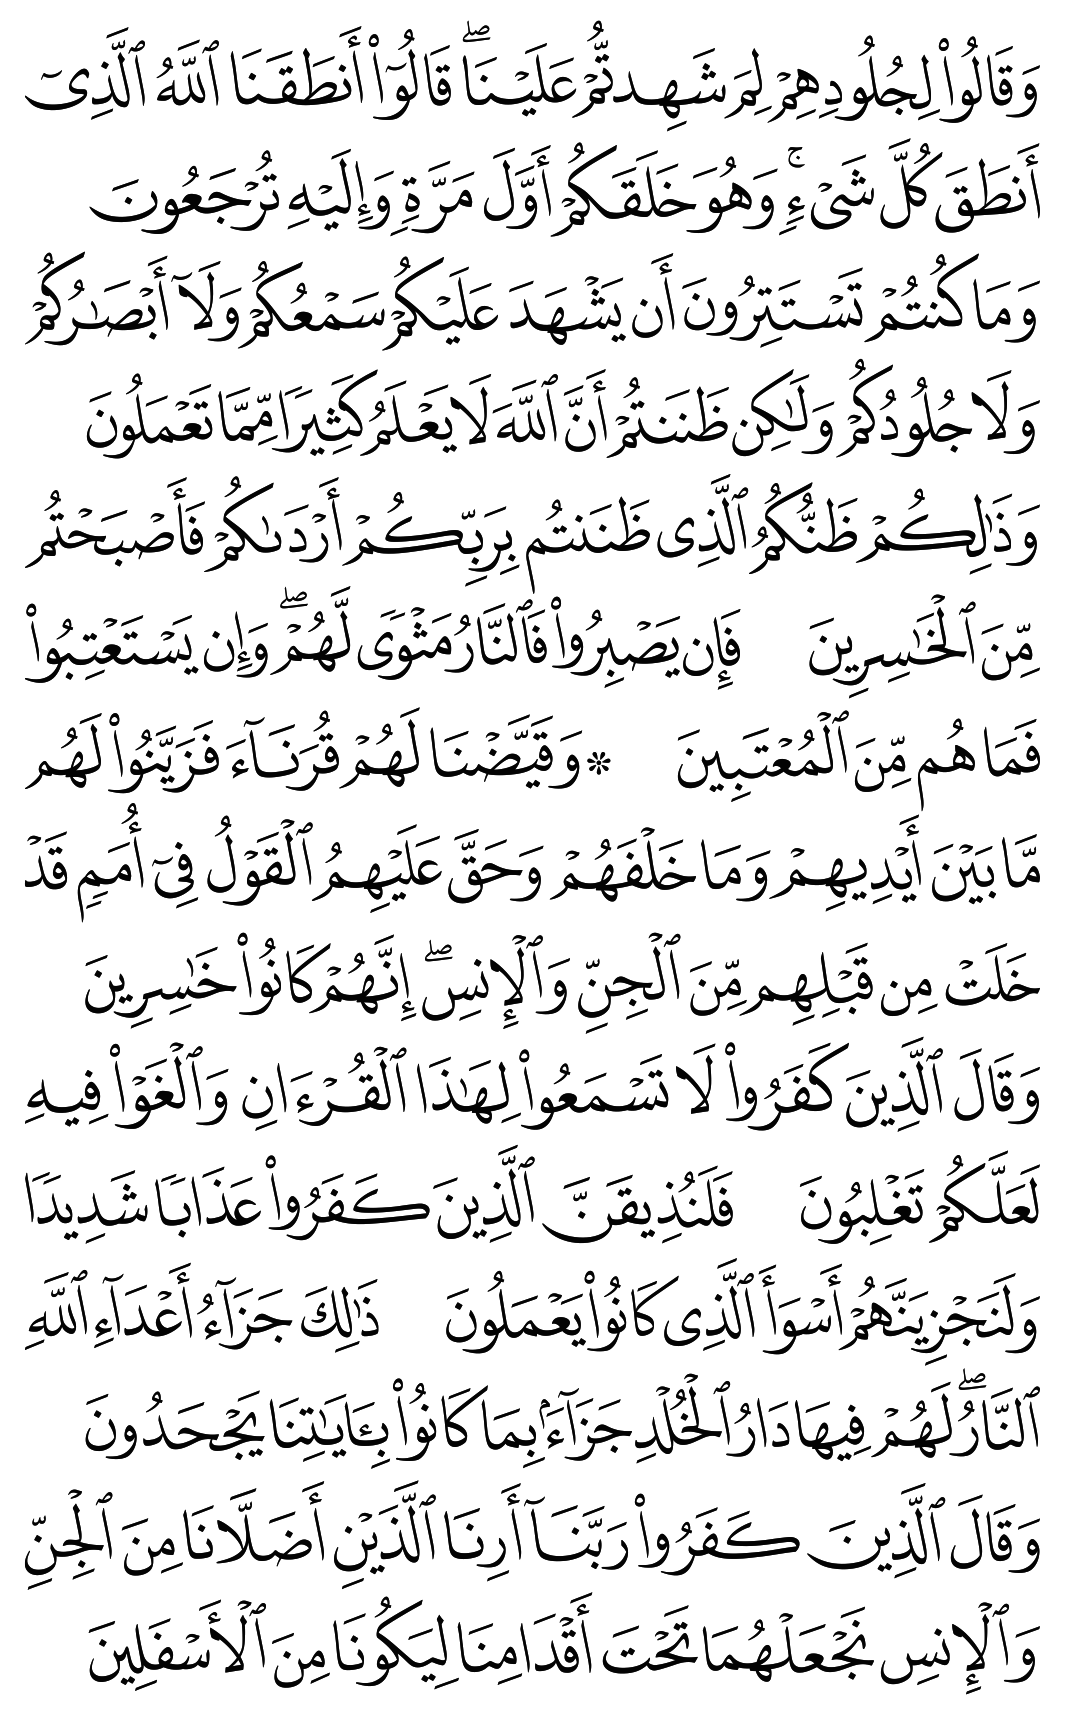 وَقَالُوا۟ لِجُلُودِهِمْ لِمَ شَهِدتُّمْ عَلَيْنَا ۖ قَالُوٓا۟ أَنطَقَنَا ٱللَّهُ ٱلَّذِىٓ
أَنطَقَ كُلَّ شَىْءٍ ۚ وَهُوَ خَلَقَكُمْ أَوَّلَ مَرَّةٍ وَإِلَيْهِ تُرْجَعُونَ
وَمَا كُنتُمْ تَسْتَتِرُونَ أَن يَشْهَدَ عَلَيْكُمْ سَمْعُكُمْ وَلَآ أَبْصَـٰرُكُمْ
وَلَا جُلُودُكُمْ وَلَـٰكِن ظَنَنتُمْ أَنَّ ٱللَّهَ لَا يَعْلَمُ كَثِيرًا مِّمَّا تَعْمَلُونَ
وَذَٰلِكُمْ ظَنُّكُمُ ٱلَّذِى ظَنَنتُم بِرَبِّكُمْ أَرْدَىٰكُمْ فَأَصْبَحْتُم
مِّنَ ٱلْخَـٰسِرِينَ فَإِن يَصْبِرُوا۟ فَٱلنَّارُ مَثْوًى لَّهُمْ ۖ وَإِن يَسْتَعْتِبُوا۟
فَمَا هُم مِّنَ ٱلْمُعْتَبِينَ ۞ وَقَيَّضْنَا لَهُمْ قُرَنَآءَ فَزَيَّنُوا۟ لَهُم
مَّا بَيْنَ أَيْدِيهِمْ وَمَا خَلْفَهُمْ وَحَقَّ عَلَيْهِمُ ٱلْقَوْلُ فِىٓ أُمَمٍ قَدْ
خَلَتْ مِن قَبْلِهِم مِّنَ ٱلْجِنِّ وَٱلْإِنسِ ۖ إِنَّهُمْ كَانُوا۟ خَـٰسِرِينَ
وَقَالَ ٱلَّذِينَ كَفَرُوا۟ لَا تَسْمَعُوا۟ لِهَـٰذَا ٱلْقُرْءَانِ وَٱلْغَوْا۟ فِيهِ
لَعَلَّكُمْ تَغْلِبُونَ فَلَنُذِيقَنَّ ٱلَّذِينَ كَفَرُوا۟ عَذَابًا شَدِيدًا
وَلَنَجْزِيَنَّهُمْ أَسْوَأَ ٱلَّذِى كَانُوا۟ يَعْمَلُونَ ذَٰلِكَ جَزَآءُ أَعْدَآءِ ٱللَّهِ
ٱلنَّارُ ۖ لَهُمْ فِيهَا دَارُ ٱلْخُلْدِ جَزَآءًۢ بِمَا كَانُوا۟ بِـَٔايَـٰتِنَا يَجْحَدُونَ
وَقَالَ ٱلَّذِينَ كَفَرُوا۟ رَبَّنَآ أَرِنَا ٱلَّذَيْنِ أَضَلَّانَا مِنَ ٱلْجِنِّ
وَٱلْإِنسِ نَجْعَلْهُمَا تَحْتَ أَقْدَامِنَا لِيَكُونَا مِنَ ٱلْأَسْفَلِينَ